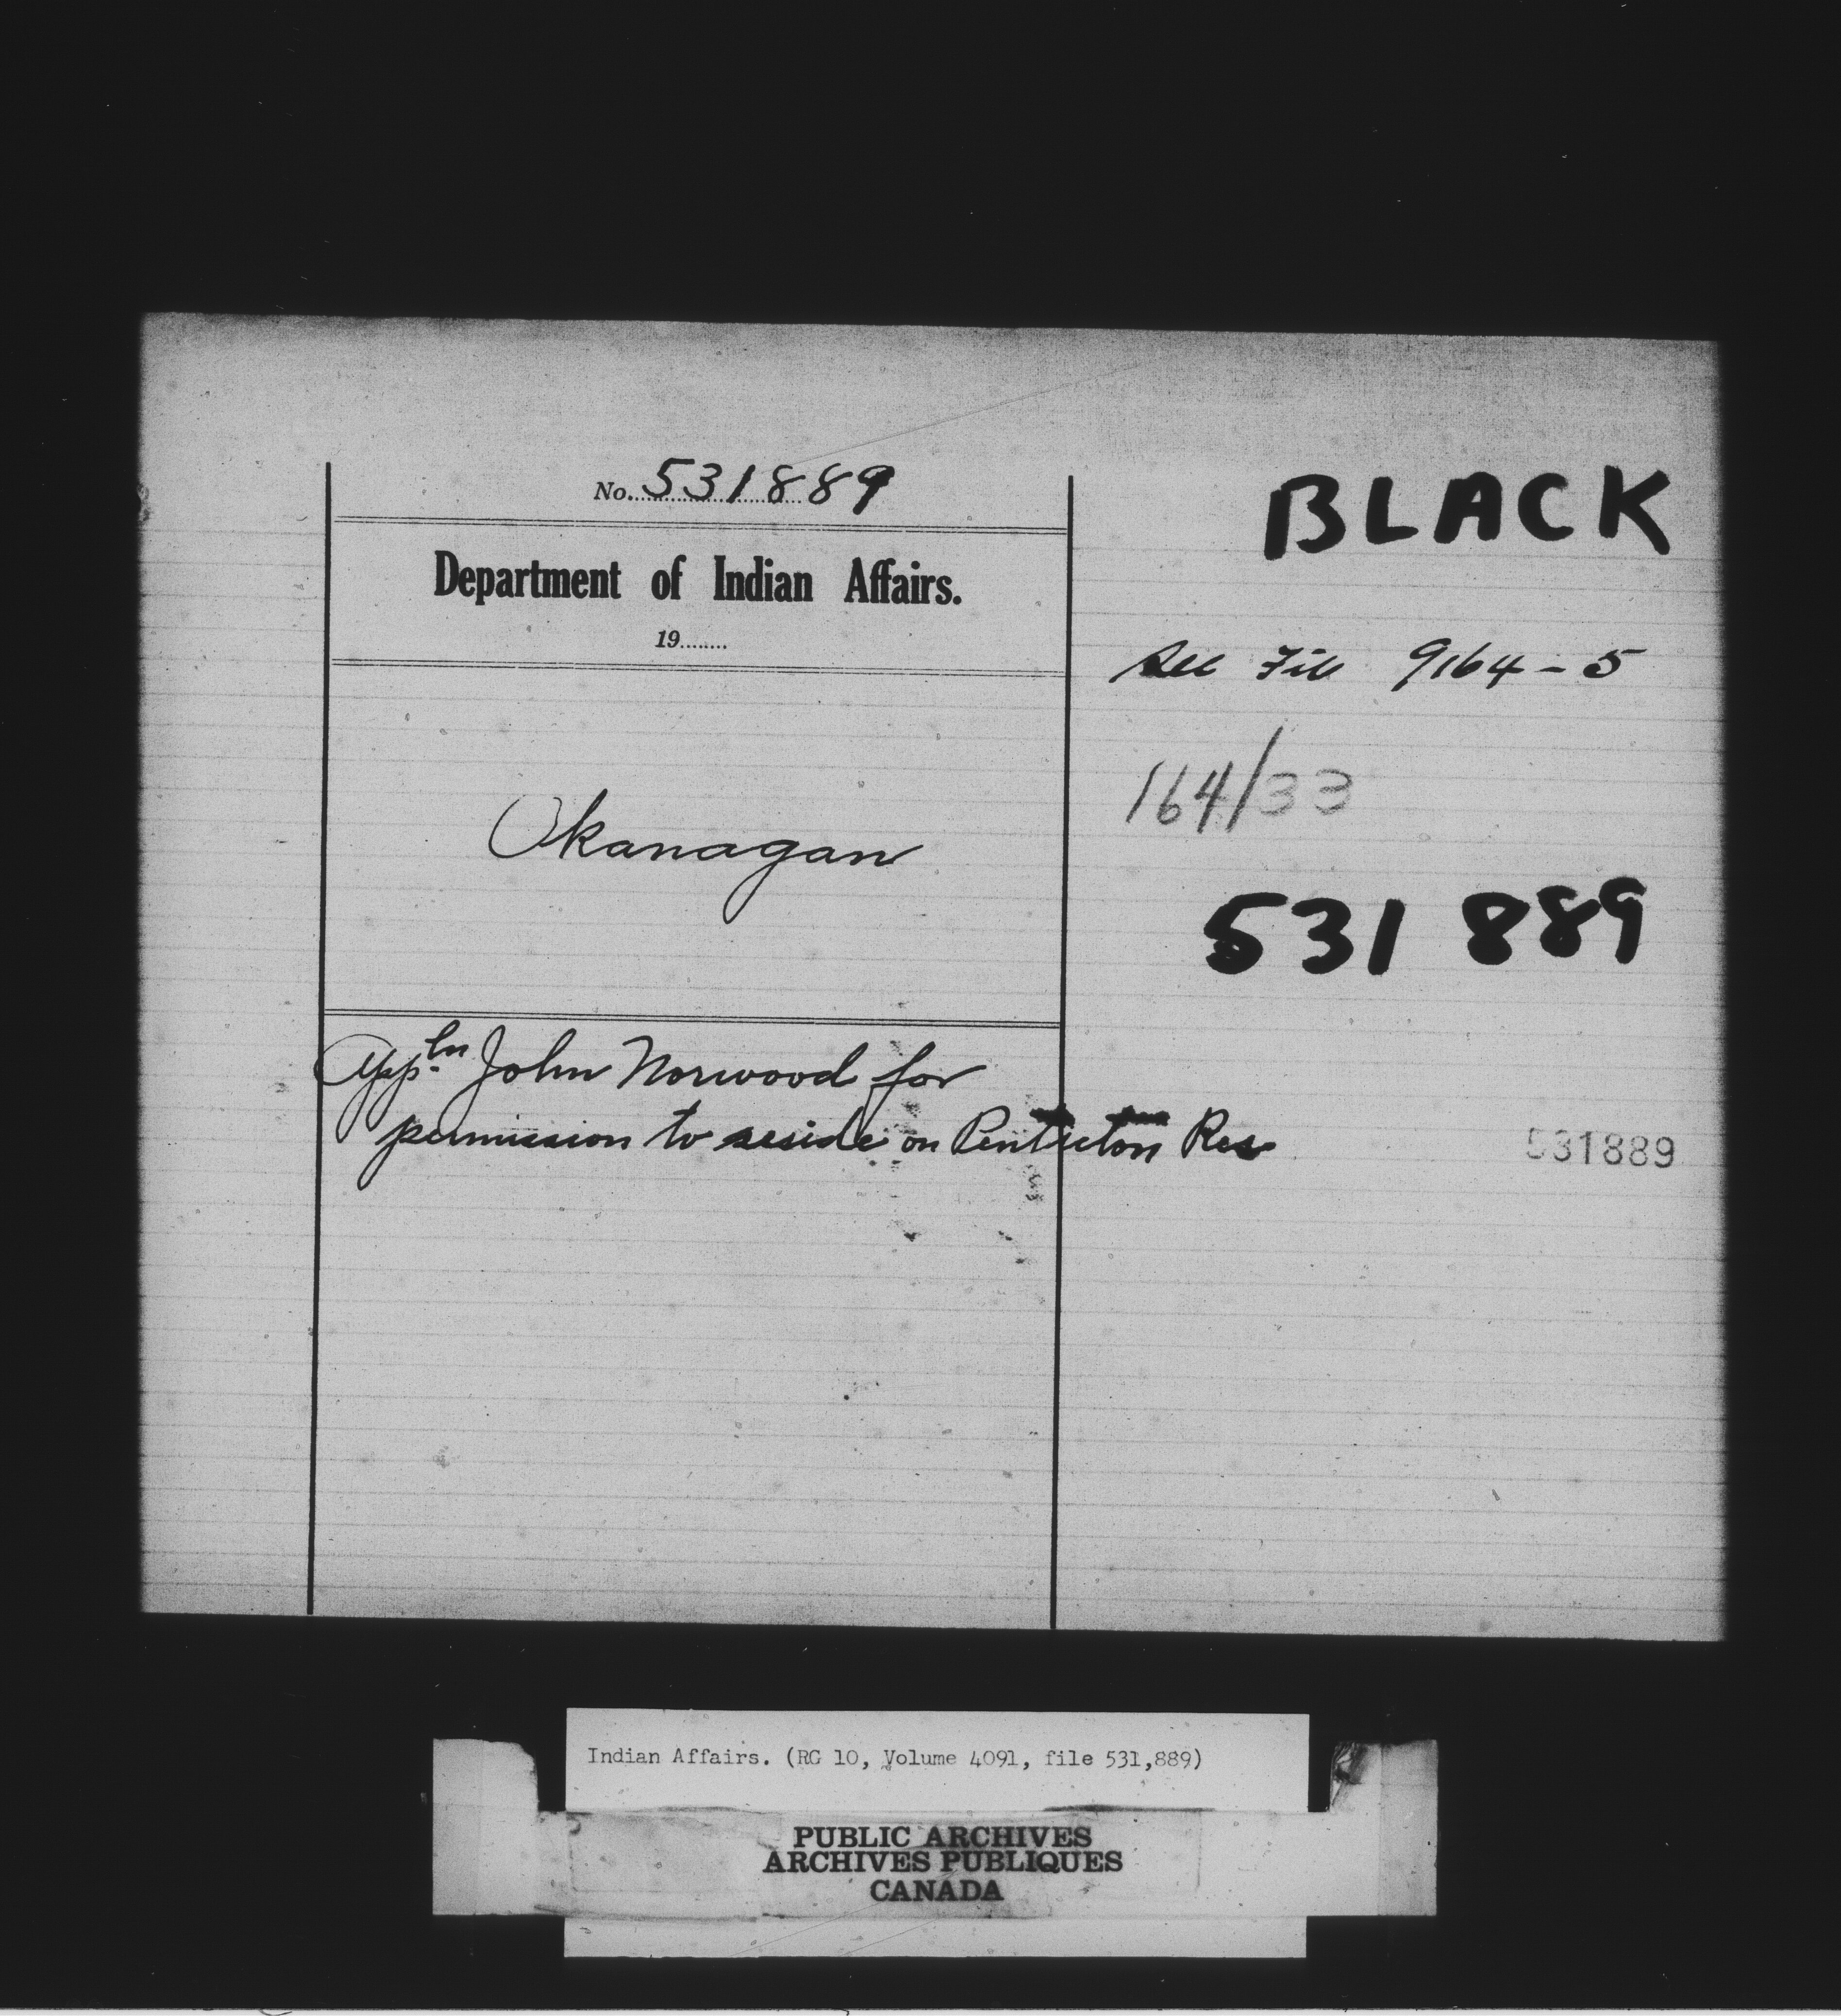 No. 531889
Department of Indian Affairs.
19........
Okanagan
Appln John Norwood for
permission to reside on Penticton Res
BLACK
See File 9164-5
164/33
531 889
531889
Indian Affairs. (RG 10, Volume 4091, file 531,889)
PUBLIC ARCHIVES
ARCHIVES PUBLIQUES
CANADA